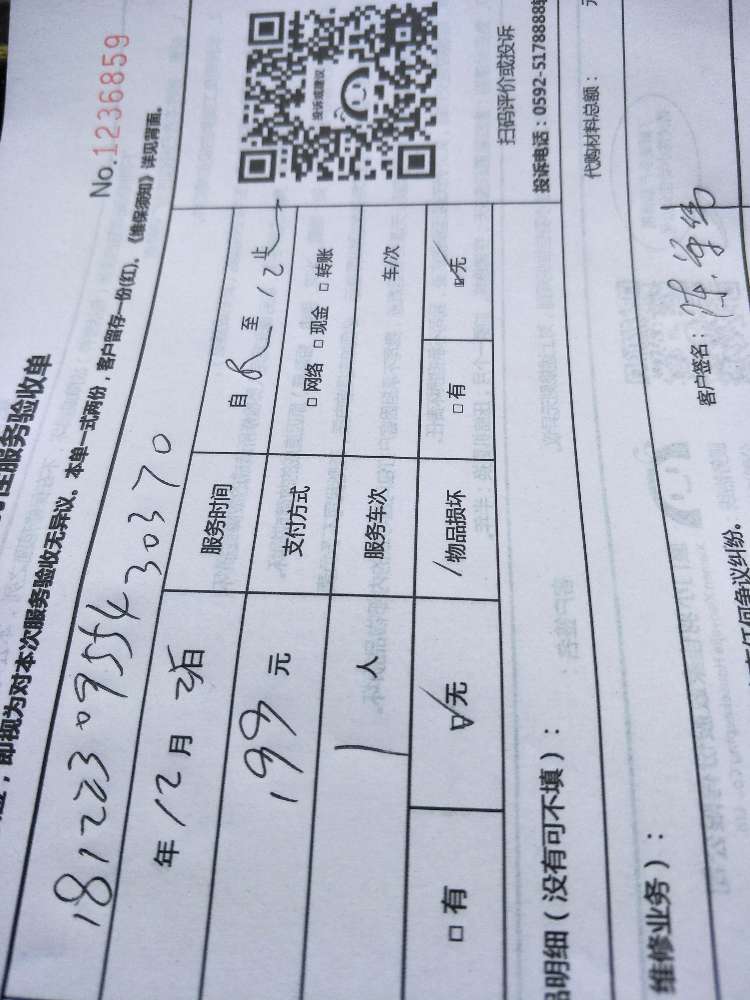 性服务验收单
No.1236859
即视为对本次服务验收无异议。本单一式两份，客户留存一份(红)，《维保须知》详见背面。
181223095543 0370
年12月 日 服务时间 自 8 至 12 止
199 元 支付方式 □ 网络 □ 现金 □ 转账
1 人 服务车次 车/次
□ 有 ☑无 物品损坏 □ 有 ☑无
投诉或建议
扫码评价或投诉
投诉电话：0592-5178888
明细（没有可不填）：
代购材料总额：
维修业务）：
客户签名：
任何争议纠纷。